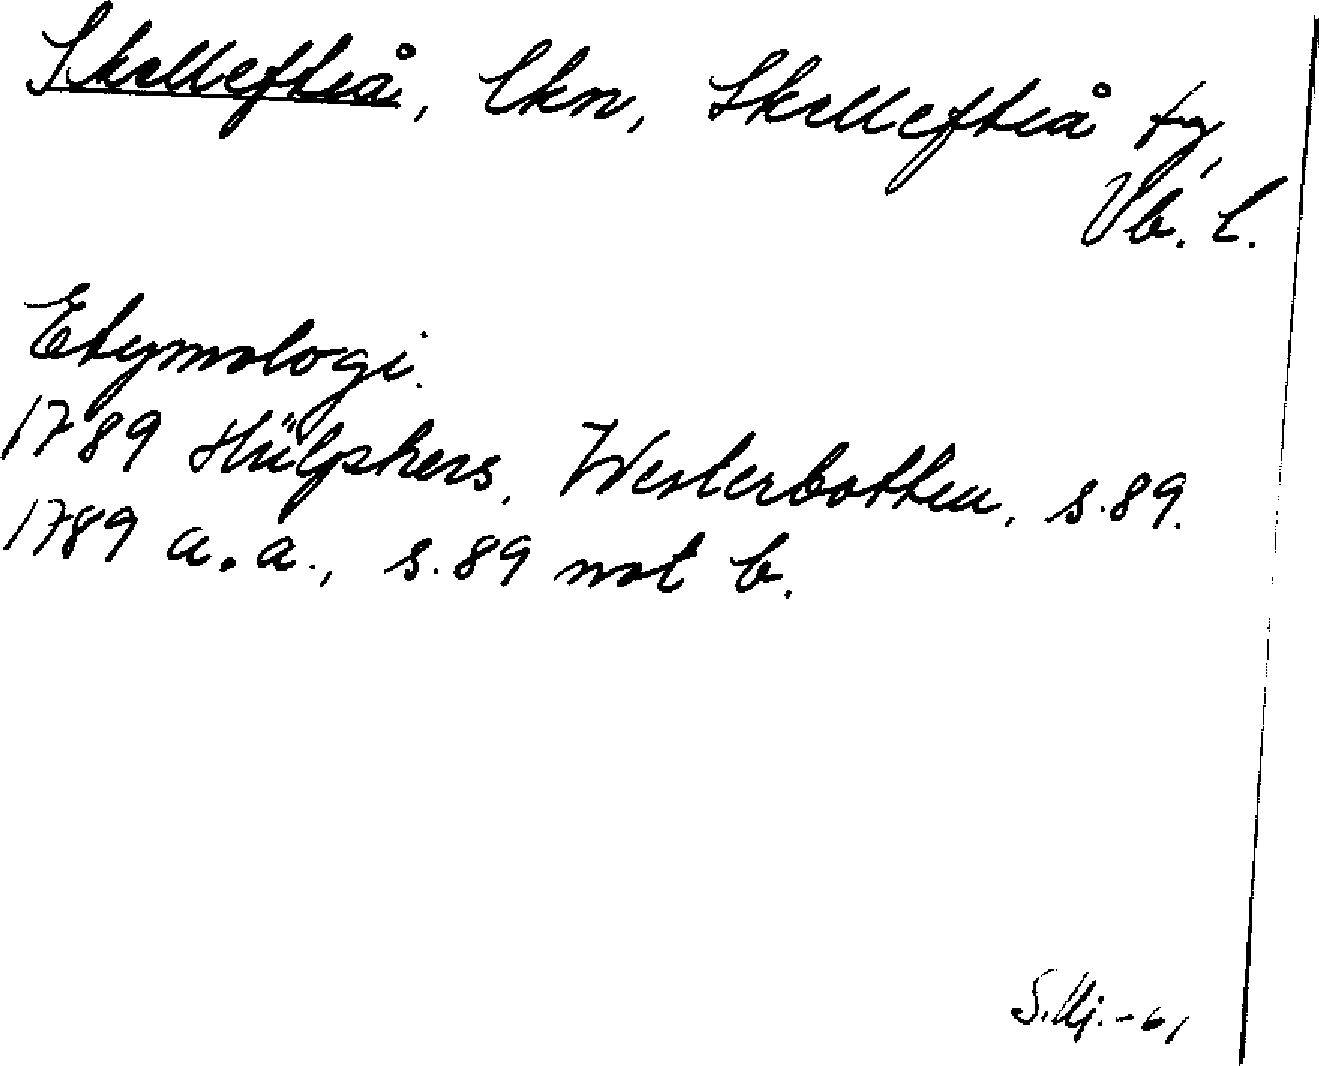 Skellefteå, lkn, Skellefteå tg,
Vb. l.
Etymologi.
1789 Hülphers, Westerbotten, s. 89.
1789 a. a., s. 89 not b.